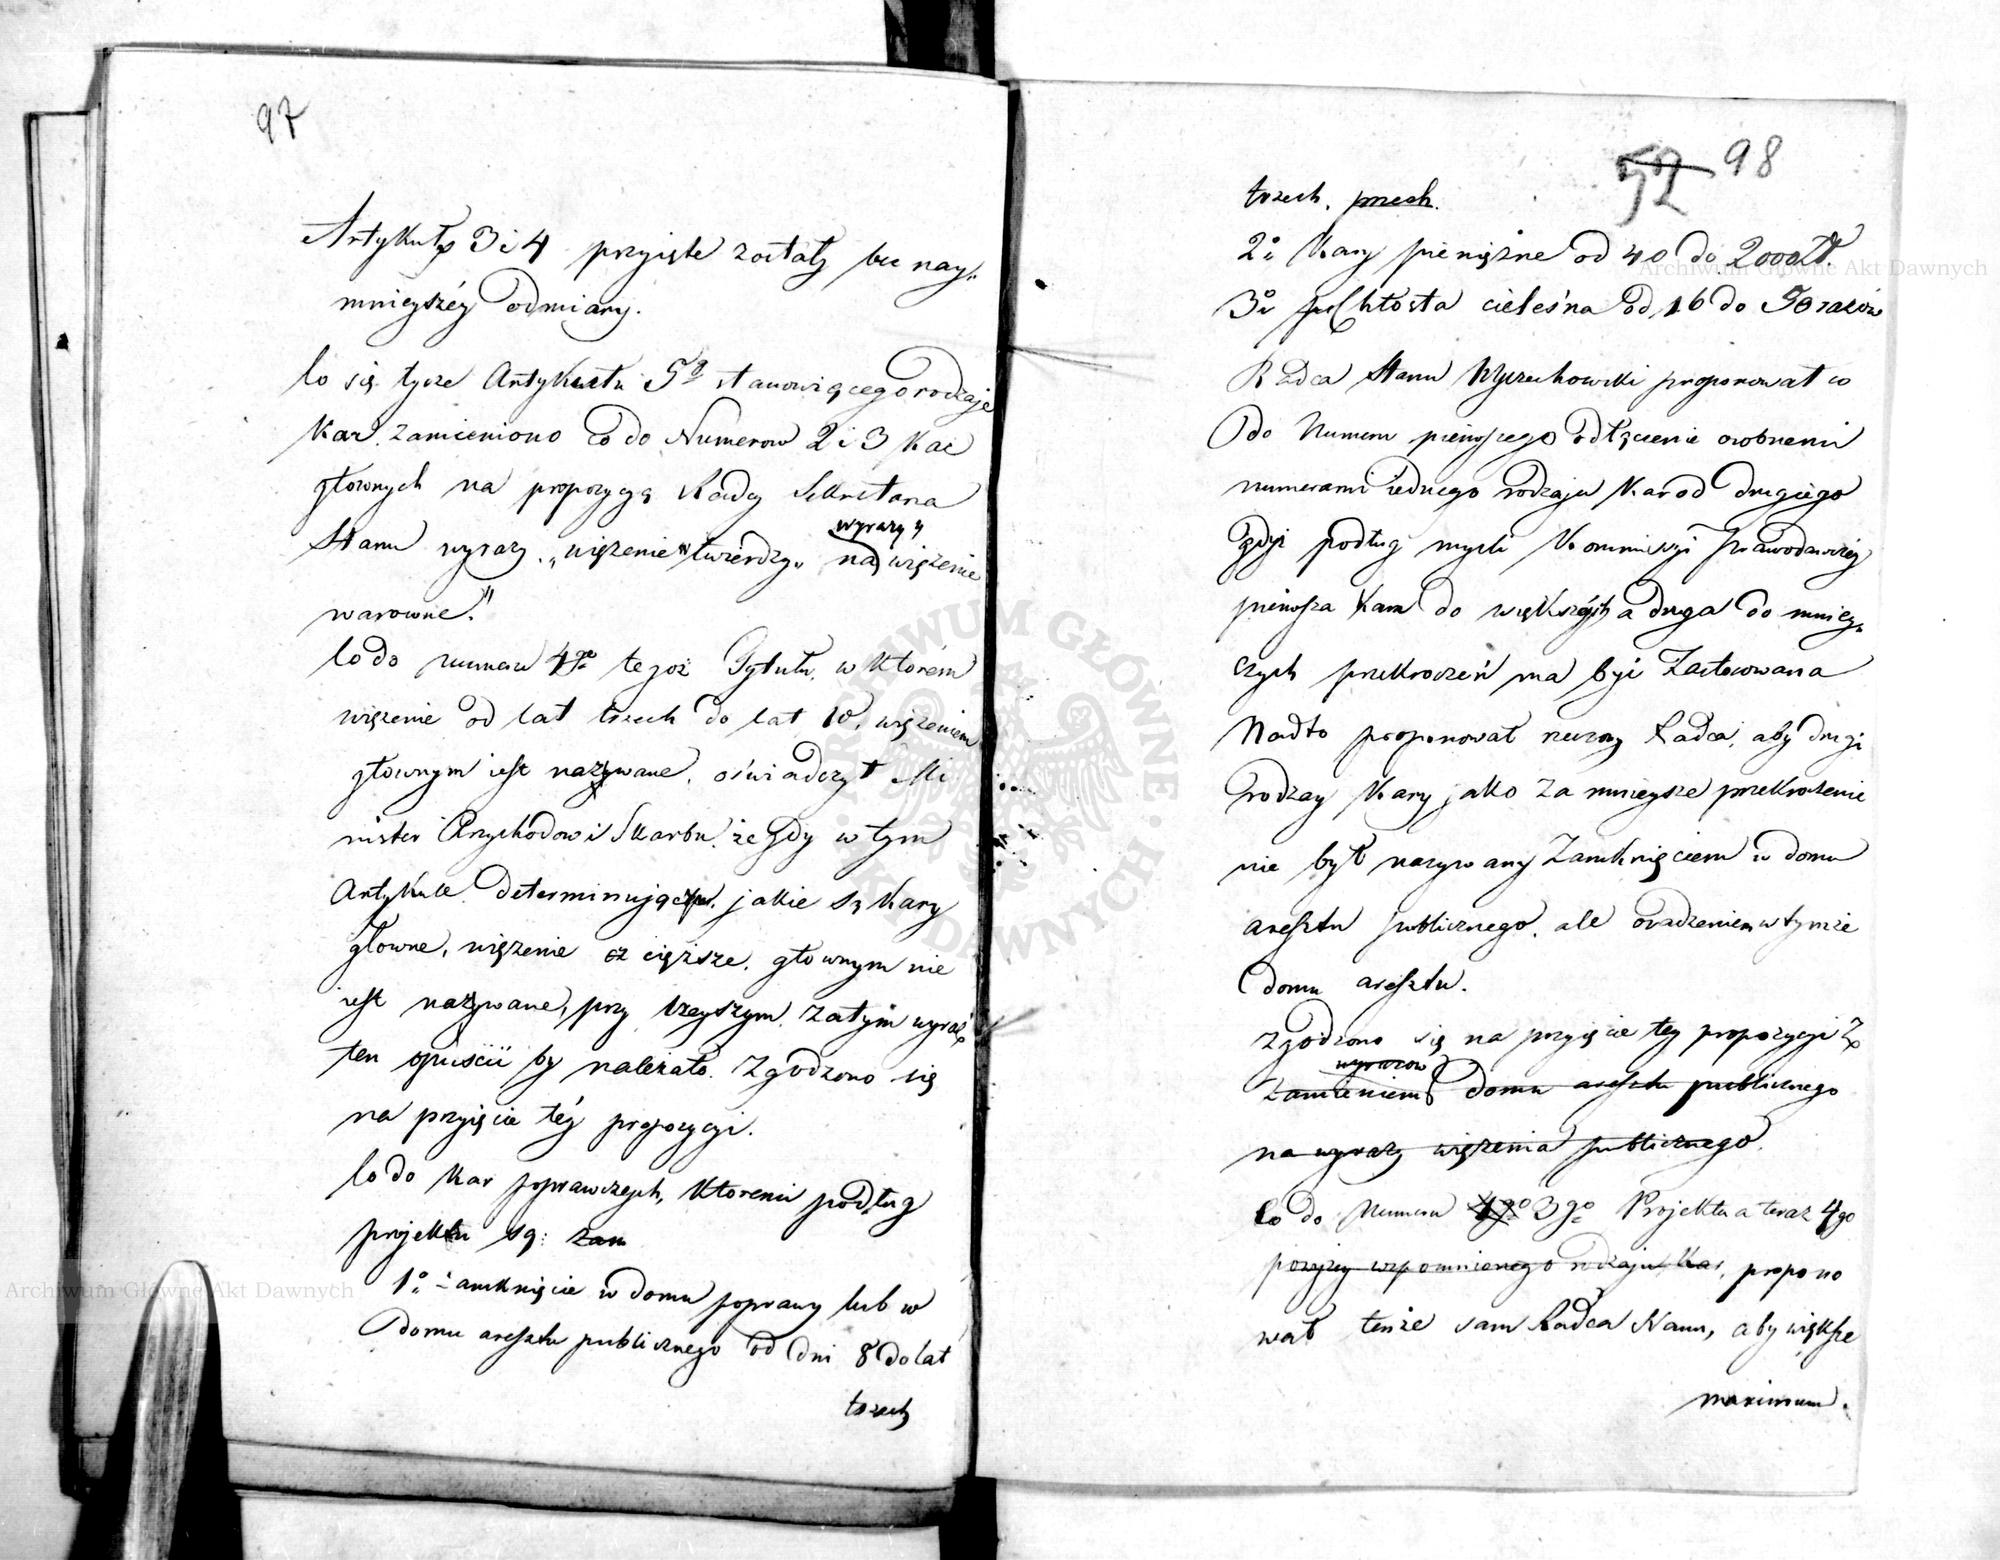 97
Artykuły 3 i 4 przyięte zostały bez nay,,
mnieyszéy odmiany.
Co się tycze Artykułu 5º stanowiącego rodzaje
Kar. zamieniono co do Numerow 2 i 3 Kar
głownych na propozycyą Rady Sekretarza
Stanu wyrazy „więzienie twierdzy„ na wyrazy „ więzienie
warowne."
Co do numeru 4go tegoż Tytułu, w którém
więzenie od lat trzech do lat 10, więzeniem
głownym iest nazywane, oświadczył Mi
nister Przychodow i Skarbu, że gdy w tym
Artykule determinującym, jakie są kary
głowne, więzenie cięższe, głownym nie
iest nazywane, przy lżeyszym, zatym wyraz
ten opuścić by należało. Zgodzono się
na przyięcie téy propozycyi.
Co do kar poprawczych, któremi podług
projektu są: zam
1º zamknięcie w domu poprawy lub w
Domu aresztu publicznego od dni 8 do lat
trzech
52 98
trzech.
2º Kary pieniężne od 40 do 2000 Zł.
3º Chłosta cieleśna od 16 do 50 razów
Radca Stanu Wyczechowski proponował co
do Numeru pierwszego odłączenie osobnemi
numerami iednego rodzaju Kar od drugiego
gdyż podług myśli Kommissyi Prawodawczéy
pierwsza kara do większych a druga do mniey,,
szych przekroczeń ma być Zastosowana
Nadto proponował rzeczony Radca, aby drugi
rodzay Kary jako za mnieysze przekroczenie
nie był nazywany Zamknięciem w domu
aresztu publicznego, ale osadzeniem w tymże
domu aresztu.
Zgodzono się na przyięcie tey propozycyi z
zamianiem wyrazow domu aresztu publicznego
na wyrazy więzenia publicznego.
Co do Numeru 4go 3go Projektu a teraz 4go
powyżey wspomnionego rodzaju Kar, propono
wał tenże sam Radca Stanu, aby większe
maximum.